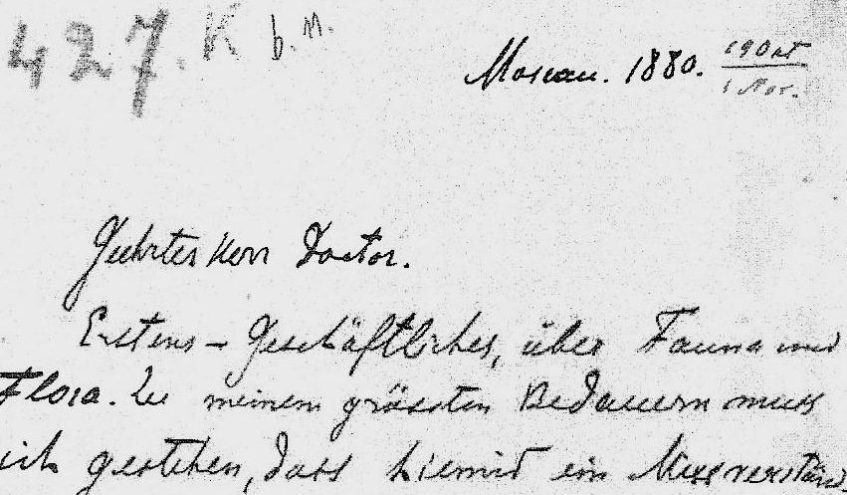 427. K b. n.
Moscau. 1880. 19 Oct / 1 Nov.
Geehrter Herr Doctor.
Erstens – Geschäftliches, über Fauna und
Flora. Zu meinem grössten Bedauern muss
ich gestehen, dass hiemit ein Missverständ